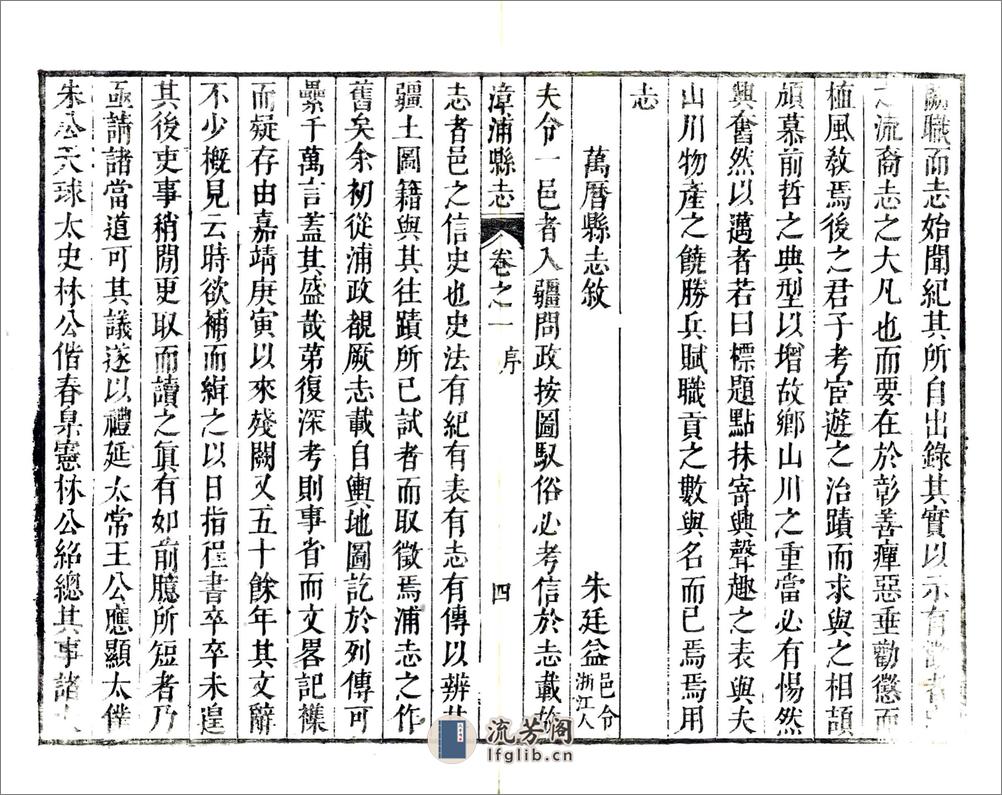 職而志始聞紀其所自出錄其實以示有
流裔志之大凡也而要在於彰善癉惡垂勸懲而
植風敎焉後之君子考宦遊之治蹟而求與之相頡
頏慕前哲之典型以增故鄉山川之重當必有惕然
興奮然以邁者若曰標題點抹寄興聲趣之表與夫
山川物產之饒勝兵賦職貢之數與名而已焉焉用
志
萬曆縣志敘
朱廷益邑令浙江人
夫令一邑者入疆問政按圖馭俗必考信於志載故
漳浦縣志 卷之一 序 四
志者邑之信史也史法有紀有表有志有傳以辨
疆土圖籍與其往蹟所已試者而取徵焉浦志之作
舊矣余初從浦政覩厥志載自輿地圖訖於列傳可
纍千萬言蓋其盛哉第復深考則事省而文畧記襍
而疑存由嘉靖庚寅以來殘闕又五十餘年其文辭
不少槪見云時欲補而緝之以日指程書卒卒未遑
其後吏事稍閒更取而讀之眞有如前臆所短者乃
亟請諸當道可其議遂以禮延太常王公應顯太僕
朱公天球太史林公偕春臬憲林公絡總其事諸
流芳阁
lfglib.cn